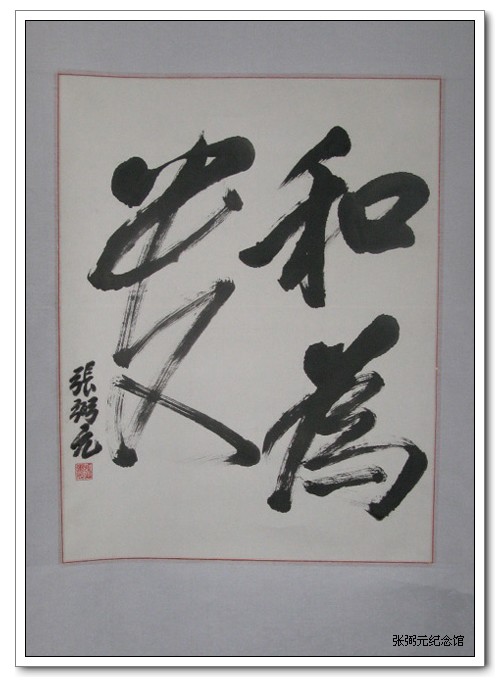 和為
貴
張弼元
张弼元纪念馆